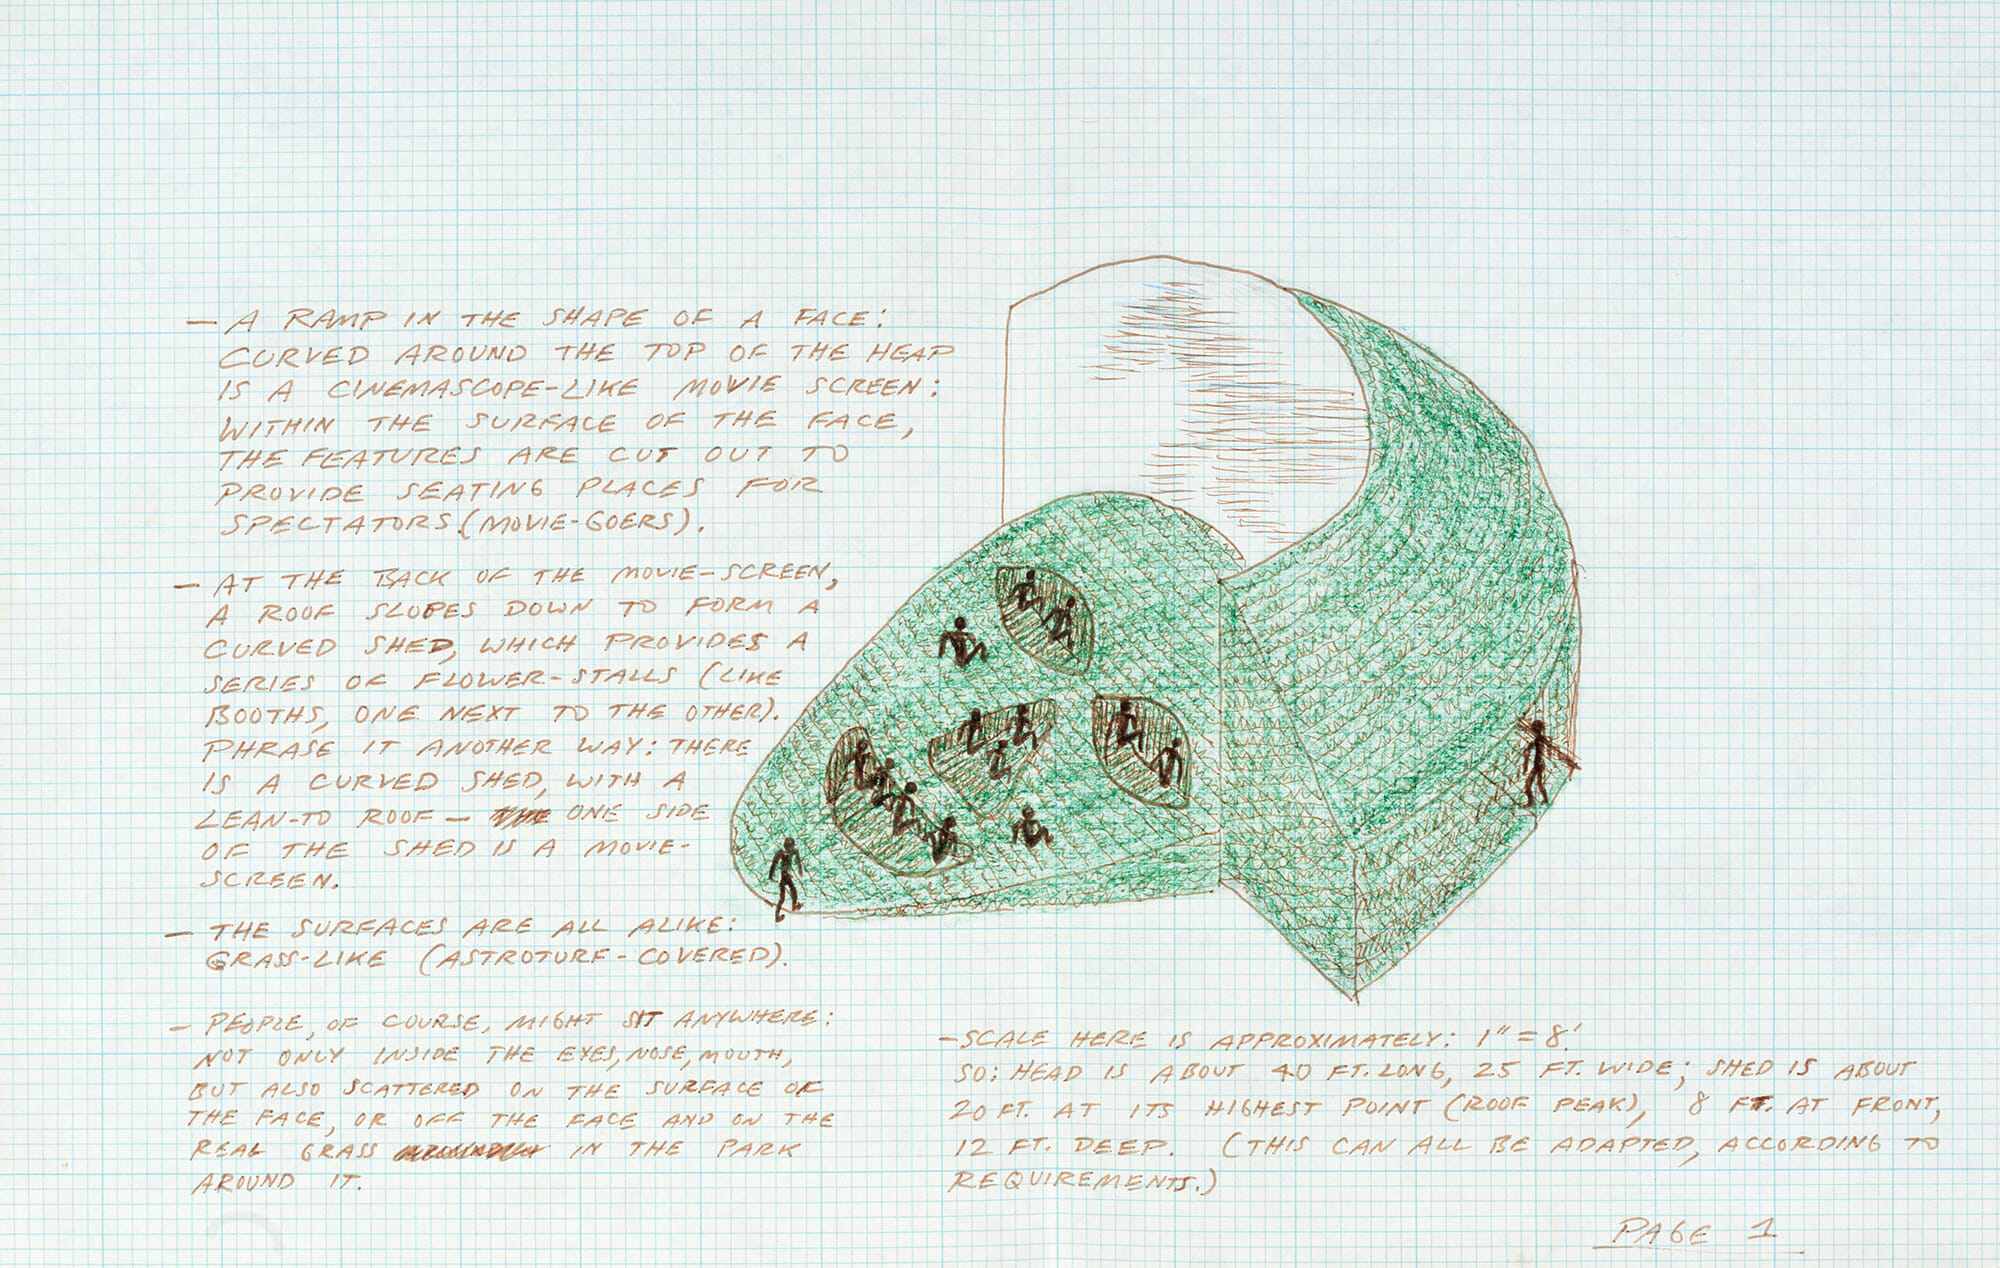 — A RAMP IN THE SHAPE OF A FACE:
CURVED AROUND THE TOP OF THE HEAP
IS A CINEMASCOPE-LIKE MOVIE SCREEN:
WITHIN THE SURFACE OF THE FACE,
THE FEATURES ARE CUT OUT TO
PROVIDE SEATING PLACES FOR
SPECTATORS (MOVIE-GOERS).
— AT THE BACK OF THE MOVIE-SCREEN,
A ROOF SLOPES DOWN TO FORM A
CURVED SHED, WHICH PROVIDES A
SERIES OF FLOWER-STALLS (LIKE
BOOTHS, ONE NEXT TO THE OTHER).
PHRASE IT ANOTHER WAY: THERE
IS A CURVED SHED, WITH A
LEAN-TO ROOF — ONE SIDE
OF THE SHED IS A MOVIE-
SCREEN.
— THE SURFACES ARE ALL ALIKE:
GRASS-LIKE (ASTROTURF-COVERED).
— PEOPLE, OF COURSE, MIGHT SIT ANYWHERE:
NOT ONLY INSIDE THE EYES, NOSE, MOUTH,
BUT ALSO SCATTERED ON THE SURFACE OF
THE FACE, OR OFF THE FACE AND ON THE
REAL GRASS IN THE PARK
AROUND IT.
— SCALE HERE IS APPROXIMATELY: 1" = 8'.
SO: HEAD IS ABOUT 40 FT. LONG, 25 FT. WIDE; SHED IS ABOUT
20 FT. AT ITS HIGHEST POINT (ROOF PEAK), 8 FT. AT FRONT,
12 FT. DEEP. (THIS CAN ALL BE ADAPTED, ACCORDING TO
REQUIREMENTS.)
PAGE 1